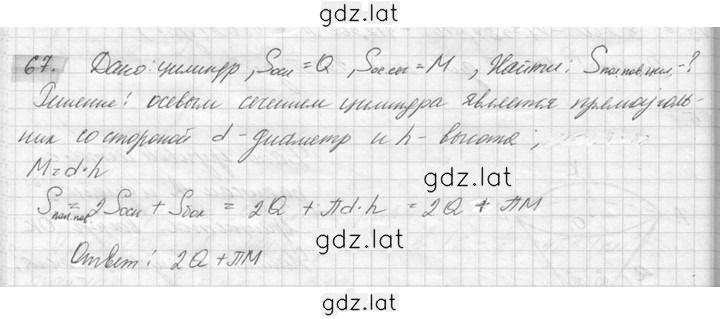 gdz.latr
gdz.latr
67. Дано: цилиндр, Sосн = Q, Sос.сеч = M, Найти: Sпол.пов.цил. - ?
Решение: осевым сечением цилиндра является прямоуголь-
ник со стороной d - диаметр и h - высота;
M = d·h
gdz.latr
Sпол.пов. = 2Sосн + Sбок = 2Q + πd·h = 2Q + πM
gdz.latr
Ответ: 2Q + πM
gdz.latr